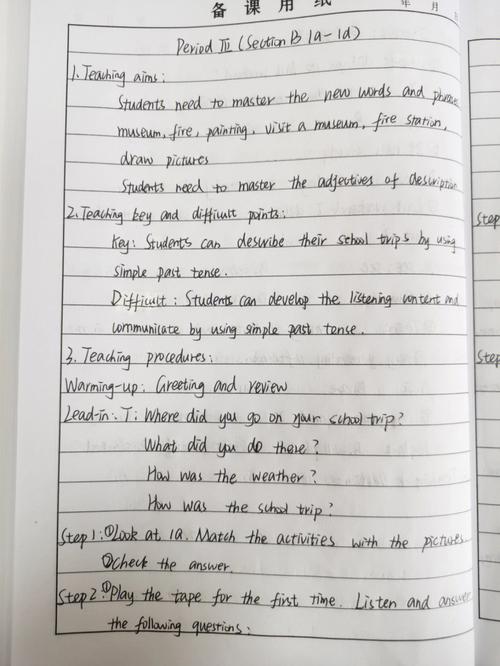 备课用纸
年 月
Period III (Section B 1a-1d)
1. Teaching aims:
Students need to master the new words and phrase
museum, fire, painting, visit a museum, fire station,
draw pictures
Students need to master the adjectives of description
2. Teaching key and difficult points:
Key: Students can describe their school trips by using
simple past tense.
Difficult: Students can develop the listening content and
communicate by using simple past tense.
3. Teaching procedures:
Warming-up: Greeting and review
Lead-in: T: Where did you go on your school trip?
What did you do there?
How was the weather?
How was the school trip?
Step 1: ①Look at 1a. Match the activities with the pictures
②Check the answer.
Step 2: ①Play the tape for the first time. Listen and answer
the following questions:
Step
Step